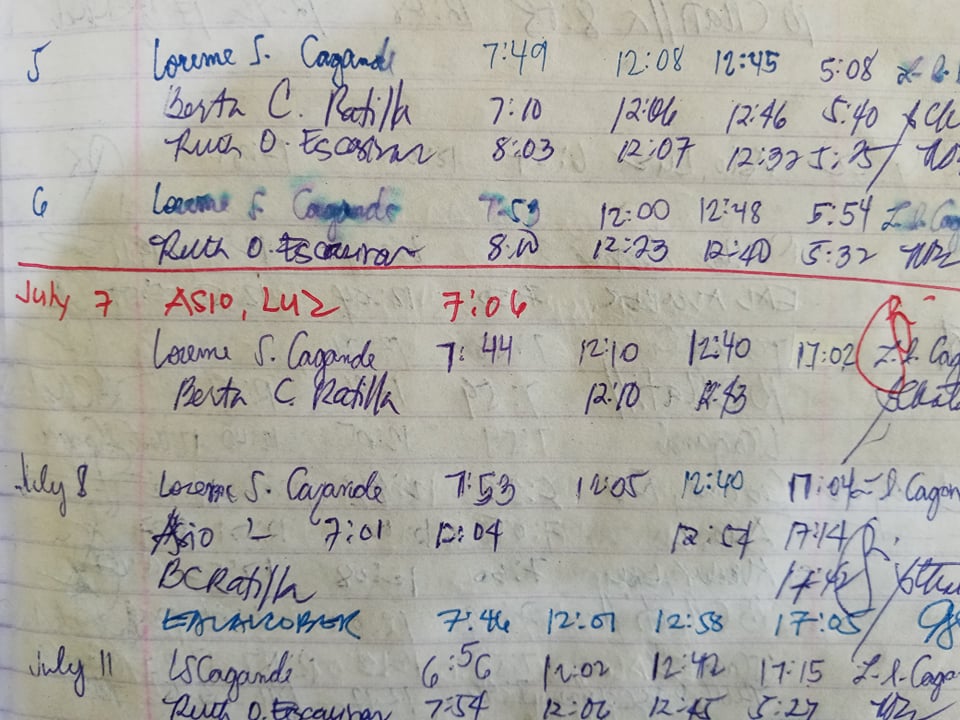 5 Loreme S. Cagande 7:49 12:08 12:45 5:08
Berta C. Ratilla 7:10 12:06 12:46 5:40
Ruth O. Escasinar 8:03 12:07 12:32 5:25
6 Loreme S. Cagande 7:53 12:00 12:48 5:54
Ruth O. Escasinar 8:10 12:23 12:40 5:32
July 7 ASIO, LUZ 7:06
Loreme S. Cagande 7:44 12:10 12:40 17:02 L.S. Cag
Berta C. Ratilla 12:10 12:43
July 8 Loreme S. Cagande 7:53 12:05 12:40 17:04 L.S. Cagan
Asio L 7:01 12:04 12:54 17:14
BCRatilla 17:42
7:46 12:01 12:58 17:05
July 11 LSCagande 6:56 12:02 12:42 17:15 L.S. Caga
Ruth O. Escasinar 7:54 12:06 12:45 5:27